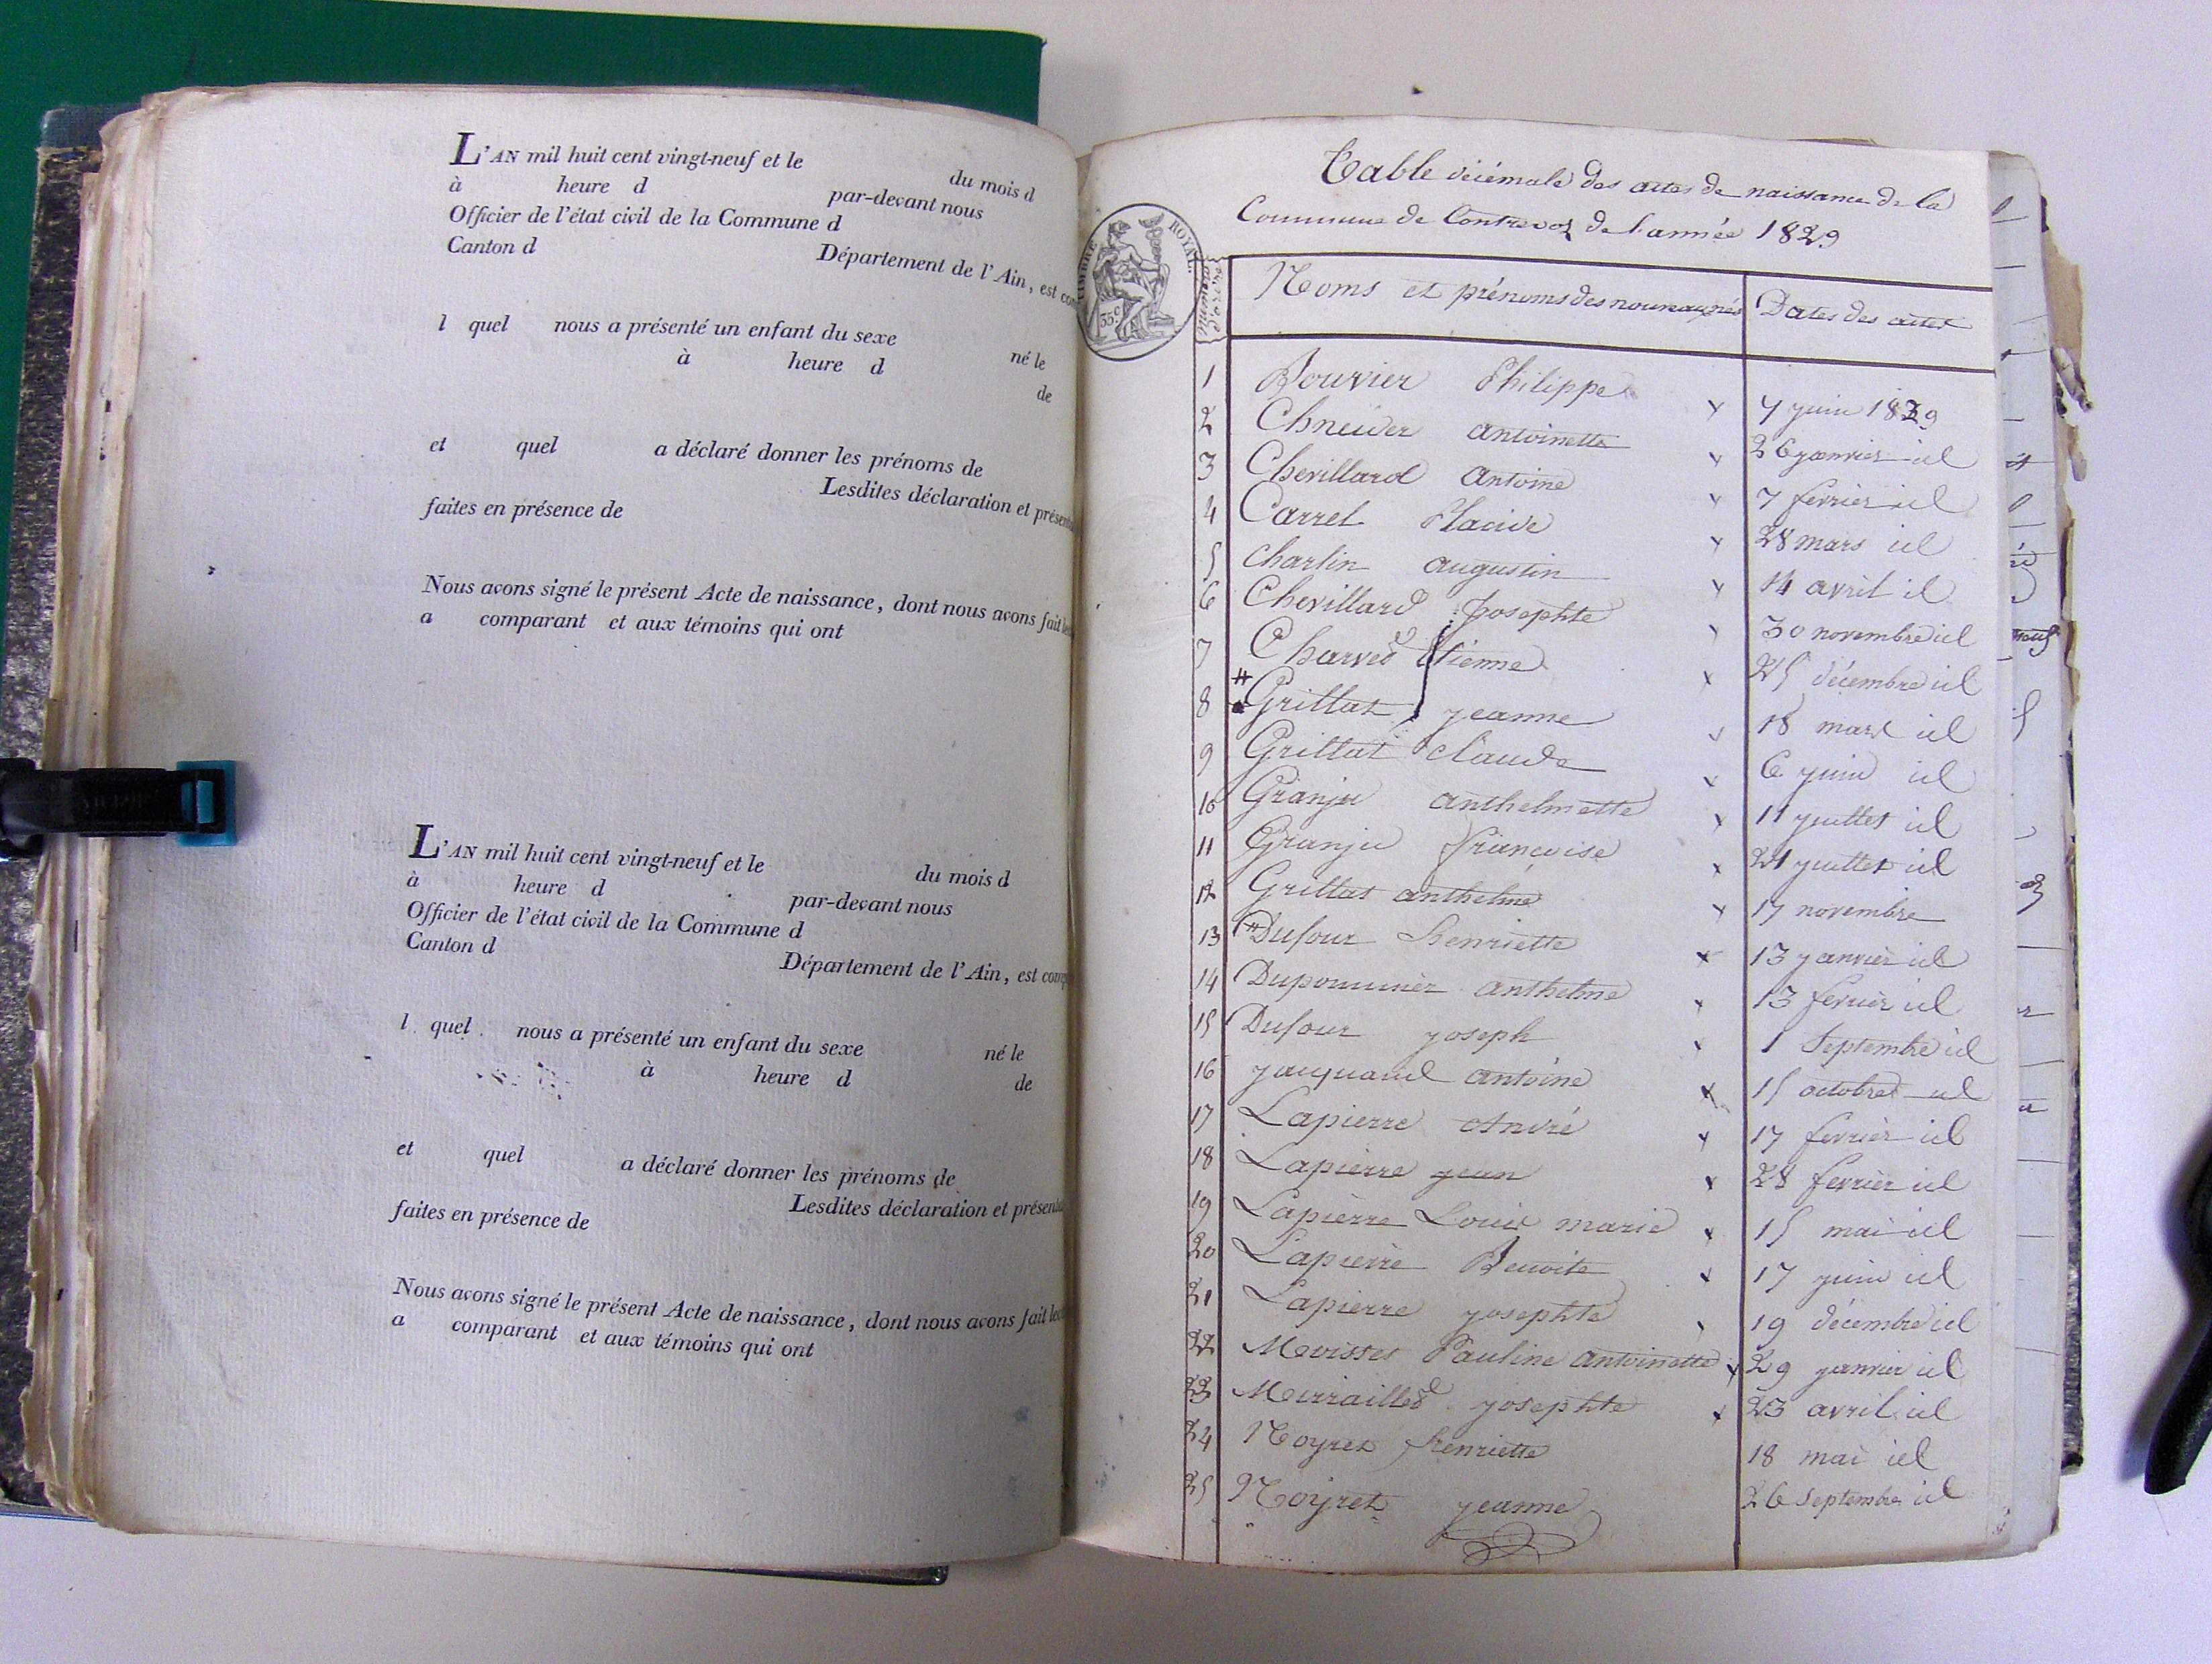 L'AN mil huit cent vingt-neuf et le du mois d
à heure d par-devant nous
Officier de l'état civil de la Commune d
Canton d Département de l'Ain, est
l quel nous a présenté un enfant du sexe né le
à heure d de
et quel a déclaré donner les prénoms de
Lesdites déclaration et
faites en présence de
Nous avons signé le présent Acte de naissance, dont nous avons fait
a comparant et aux témoins qui ont
L'AN mil huit cent vingt-neuf et le du mois d
à heure d par-devant nous
Officier de l'état civil de la Commune d
Canton d Département de l'Ain, est
l quel nous a présenté un enfant du sexe né le
à heure d de
et quel a déclaré donner les prénoms de
Lesdites déclaration et
faites en présence de
Nous avons signé le présent Acte de naissance, dont nous avons fait
a comparant et aux témoins qui ont
Table décémale des actes de naissance de la
Commune de Contrevoz de l'année 1829
TIMBRE ROYAL
35 c
numéros d'ordre Noms et prénoms des nouveaux nés Dates des actes
1 Bouvier Philippe 7 juin 1829
2 Chneider antoinette 26 janvier id
3 Chevillard Antoine 7 fevrier id
4 Carrel Placide 28 mars id
5 Charlin augustin 14 avril id
6 Chevillard Josephte 30 novembre id
7 Charved Etienne 25 décembre id
8 Grillat jeanne 18 mars id
9 Grillat Claude 6 juin id
10 Granju anthelmette 11 juillet id
11 Granju françoise 21 juillet id
12 Grillat anthelme 17 novembre
13 Dufour henriette 13 janvier id
14 Duponnier anthelme 13 fevrier id
15 Dufour joseph 1 Septembre id
16 jauquand antoine 15 octobre id
17 Lapierre André 17 fevrier id
18 Lapierre jean 28 fevrier id
19 Lapierre Louis marie 15 mai id
20 Lapierre Benoite 17 juin id
21 Lapierre josephte 19 décembre id
22 Moisset Pauline antoinette 29 janvier id
23 Murailled josephte 23 avril id
24 Noyret henriette 18 mai id
25 Noyret jeanne 26 Septembre id